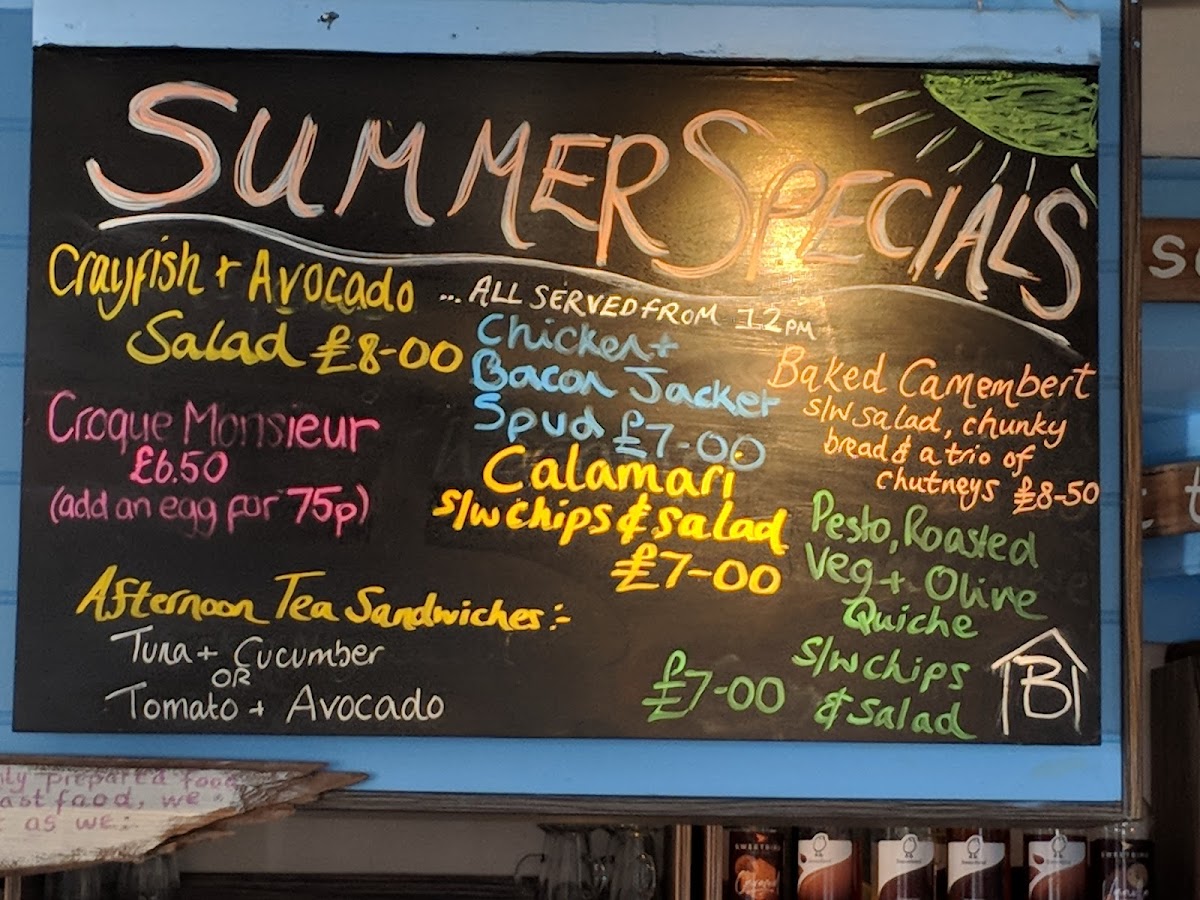 SUMMER SPECIALS
... ALL SERVED FROM 12PM
Crayfish + Avocado
Salad £8-00
Croque Monsieur
£6.50
(add an egg for 75p)
Afternoon Tea Sandwiches:-
Tuna + Cucumber
OR
Tomato + Avocado
Chicken +
Bacon Jacket
Spud £7-00
Calamari
s/w chips & salad
£7-00
Baked Camembert
s/w salad, chunky
bread & a trio of
chutneys £8-50
Pesto, Roasted
Veg + Olive
Quiche
s/w chips
& salad
£7-00
B
prepared food
food, we
as we:
SWEETBIRD